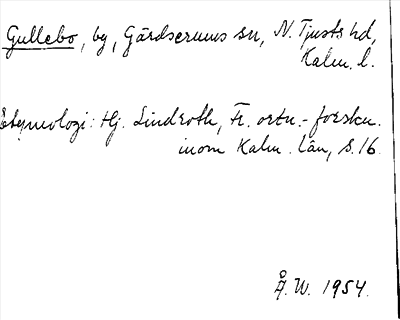 Gullebo, by, Gärdserums sn, N. Tjusts hd,
Kalm. l.
Etymologi: Hj. Lindroth, Fr. ortn.-forskn.
inom Kalm. län, s. 16.
Å. W. 1954.